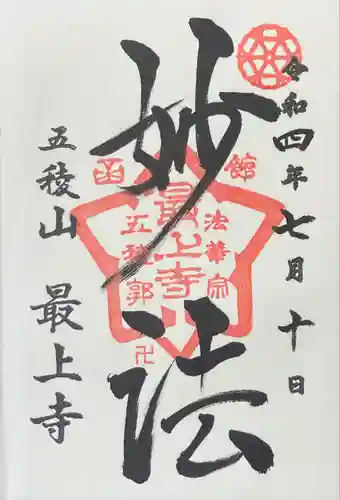 令和四年七月十日
妙法
函館
法華宗
最上寺
五稜郭
卍
五稜山 最上寺